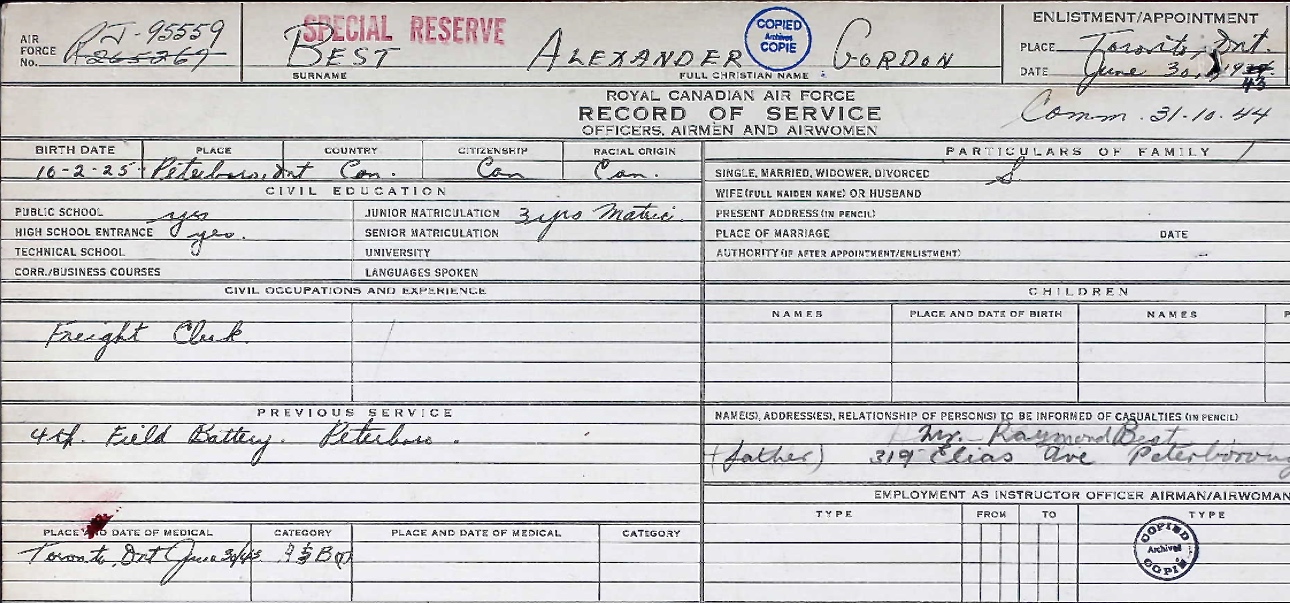 SPECIAL RESERVE
AIR FORCE No. J-95559
R265267
BEST ALEXANDER GORDON
SURNAME FULL CHRISTIAN NAME
COPIED Archives COPIÉ
ENLISTMENT/APPOINTMENT
PLACE Toronto, Ont.
DATE June 30, 1943
ROYAL CANADIAN AIR FORCE
RECORD OF SERVICE
OFFICERS, AIRMEN AND AIRWOMEN
Comm. 31-10-44
BIRTH DATE PLACE COUNTRY CITIZENSHIP RACIAL ORIGIN
16-2-25 Peterboro, Ont Can. Can Can.
CIVIL EDUCATION
PUBLIC SCHOOL yes JUNIOR MATRICULATION 3 yrs Matric.
HIGH SCHOOL ENTRANCE yes. SENIOR MATRICULATION
TECHNICAL SCHOOL UNIVERSITY
CORR./BUSINESS COURSES LANGUAGES SPOKEN
CIVIL OCCUPATIONS AND EXPERIENCE
Freight Clerk.
PREVIOUS SERVICE
4th. Field Battery. Peterboro.
PLACE AND DATE OF MEDICAL CATEGORY PLACE AND DATE OF MEDICAL CATEGORY
Toronto, Ont June 30/43
PARTICULARS OF FAMILY
SINGLE, MARRIED, WIDOWER, DIVORCED S
WIFE (FULL MAIDEN NAME) OR HUSBAND
PRESENT ADDRESS (IN PENCIL)
PLACE OF MARRIAGE DATE
AUTHORITY (IF AFTER APPOINTMENT/ENLISTMENT)
CHILDREN
NAMES PLACE AND DATE OF BIRTH NAMES P
NAME(S), ADDRESS(ES), RELATIONSHIP OF PERSON(S) TO BE INFORMED OF CASUALTIES (IN PENCIL)
Mr. Raymond Best
(father) 319 Elias Ave Peterboroug
EMPLOYMENT AS INSTRUCTOR OFFICER AIRMAN/AIRWOMAN
TYPE FROM TO TYPE
COPIED Archives COPIÉ